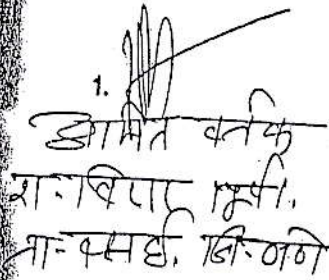 1.
अमित वर्तक
रा- विरार पूर्व.
ता- वसई. जि- ठाणे